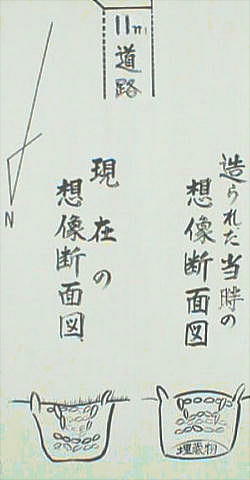 11m
道路
造られた当時の
想像断面図
現在の
想像断面図
N
埋蔵物